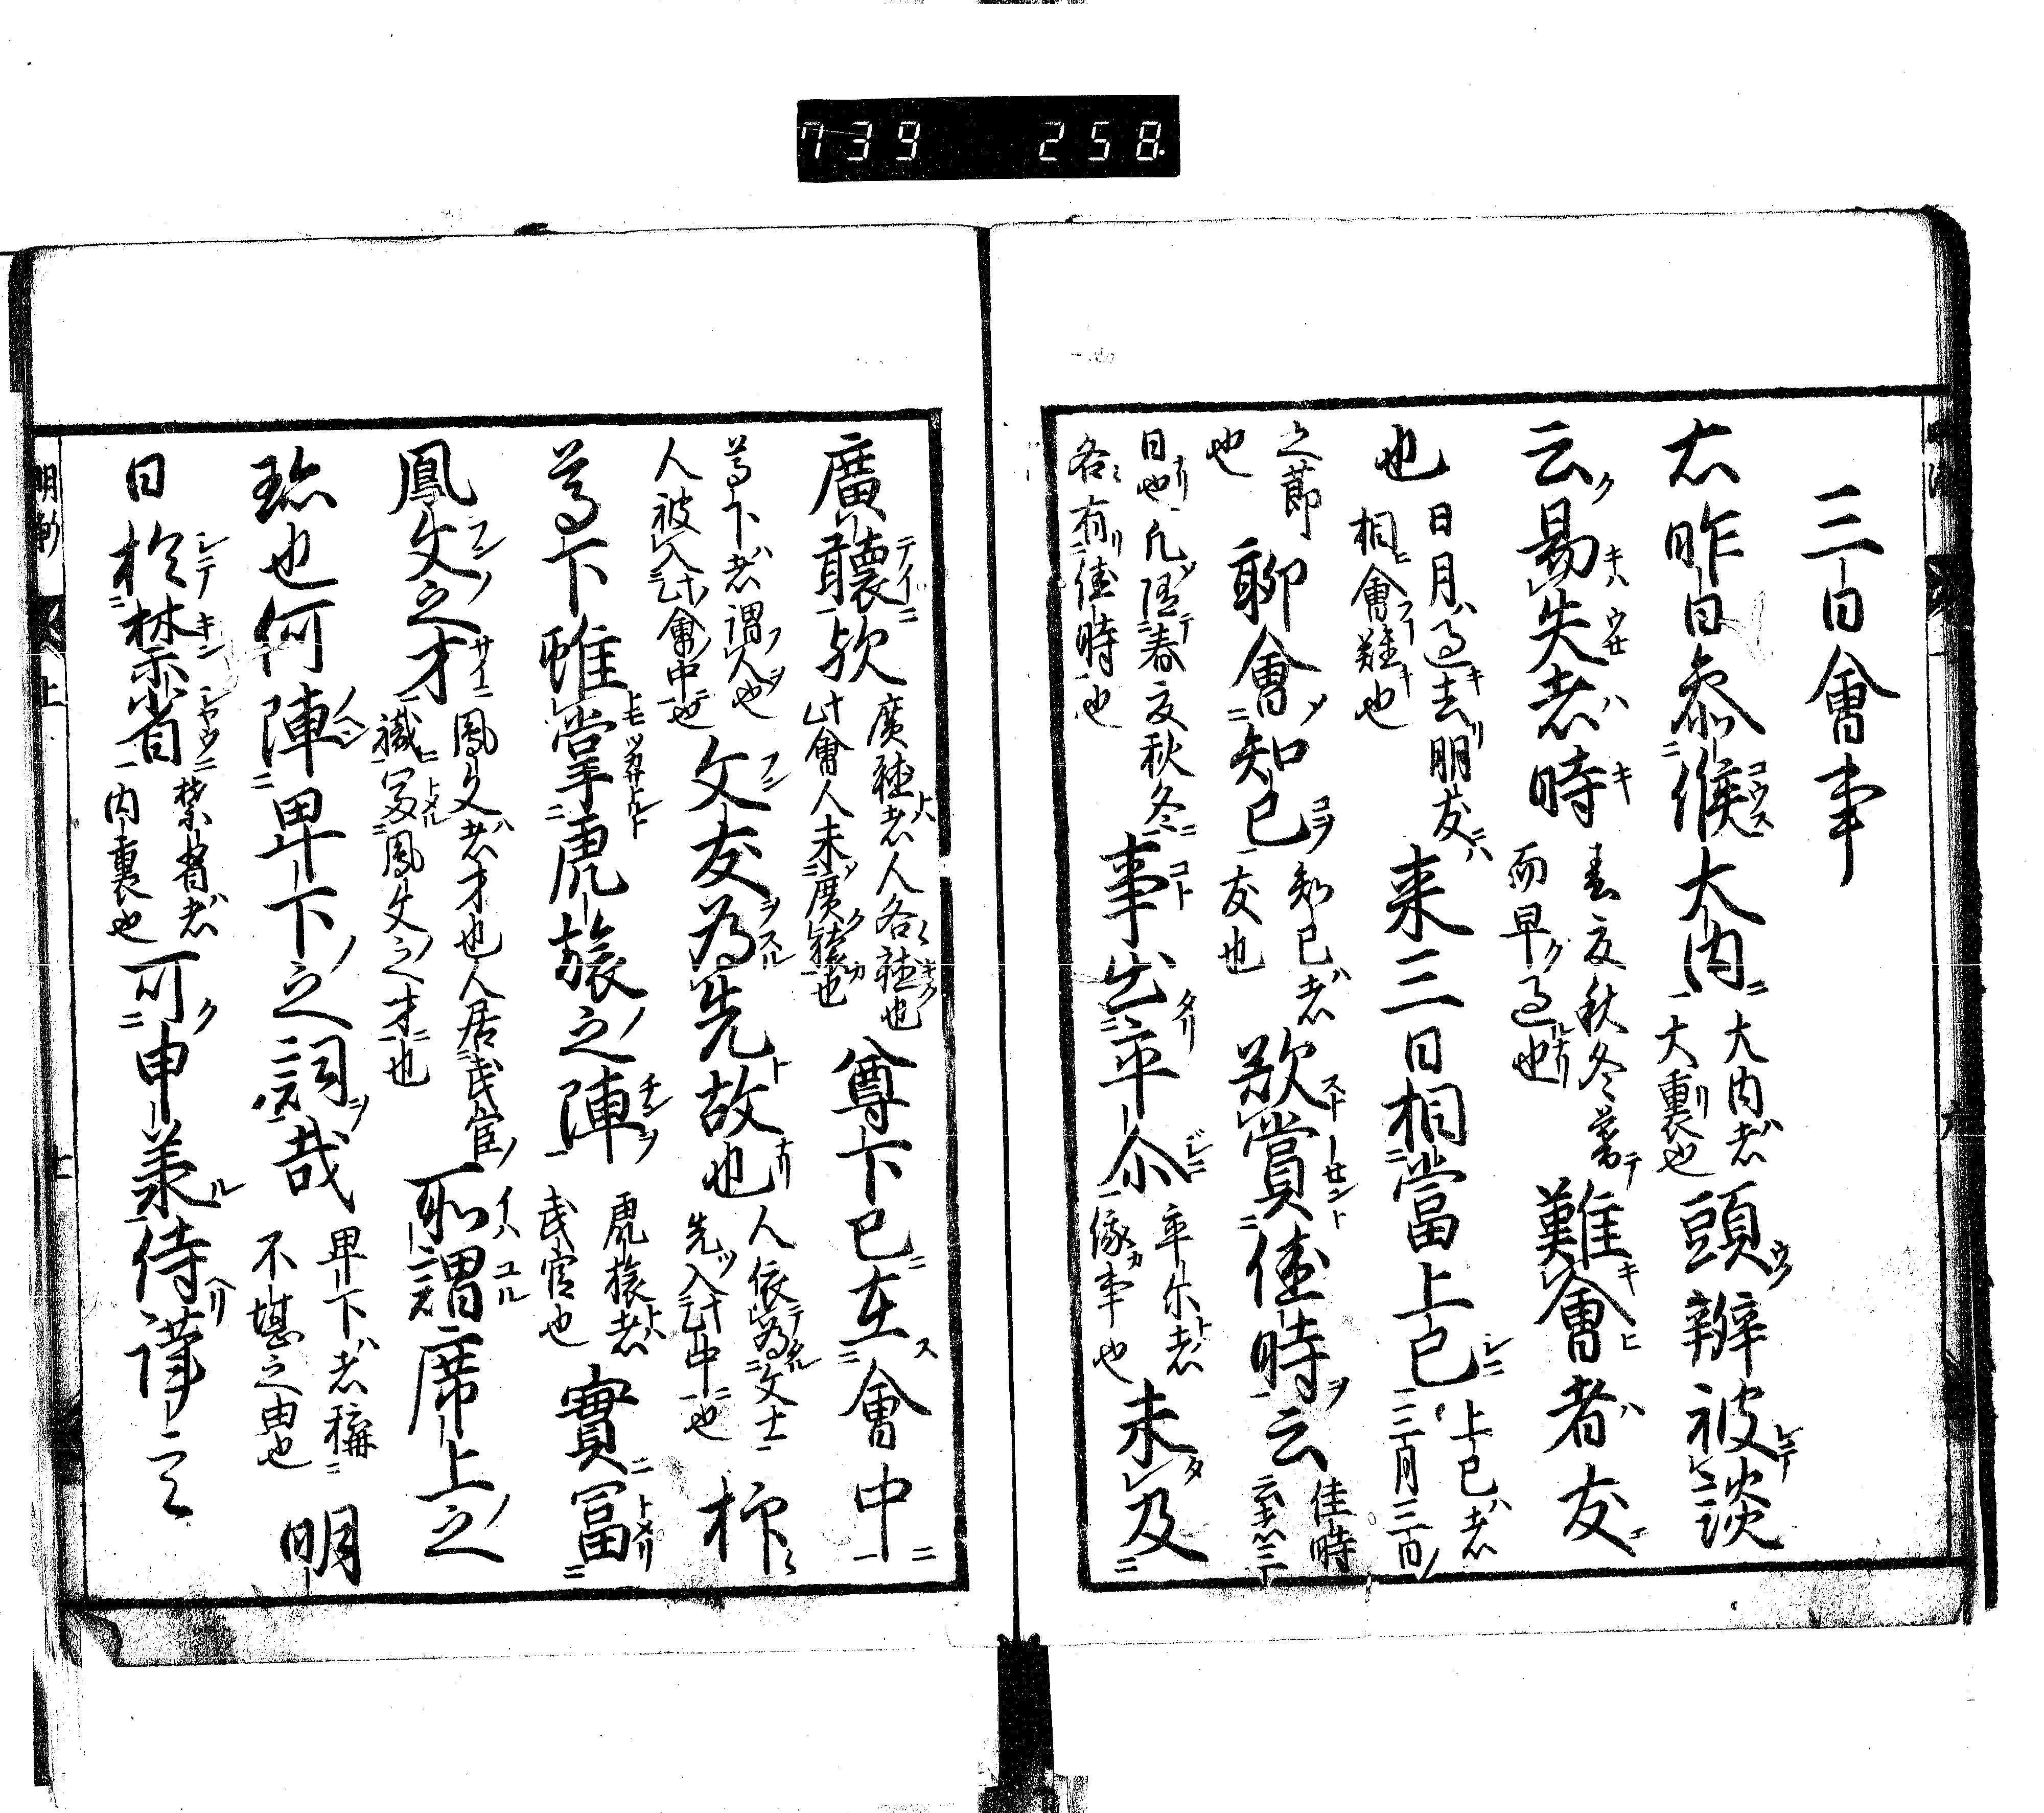 739 258.
三日會事
右昨日参候大内 大内者大裏也 頭辨被談
云易失者時 春夏秋冬暮而早過也 難會者友
也 日月過去朋友相會難也 来三日相當上巳 上巳者三月三日
之節也 聊會知己 知己者友也 欲賞佳時云 佳時云者三
日也凡隨春夏秋冬各有佳時也 事出率尒 率尓者 事也 未及
廣聽歟 廣聽者人各聽也此會人未廣聽也 尊下已在會中
尊下者謂人也人被入此會中也 文友為先故也 人依為文士先入此中也 抑
尊下雖掌虎旅之陣 虎旅者武官也 實冨
鳳文之才 鳳文者才也人居武官職冨鳳文之才也 所謂席上之
珎也何陳卑下之詞哉 卑下者稱不堪之由也 明
日於禁省 禁省者内裏也 可申美侍謹言
明 上